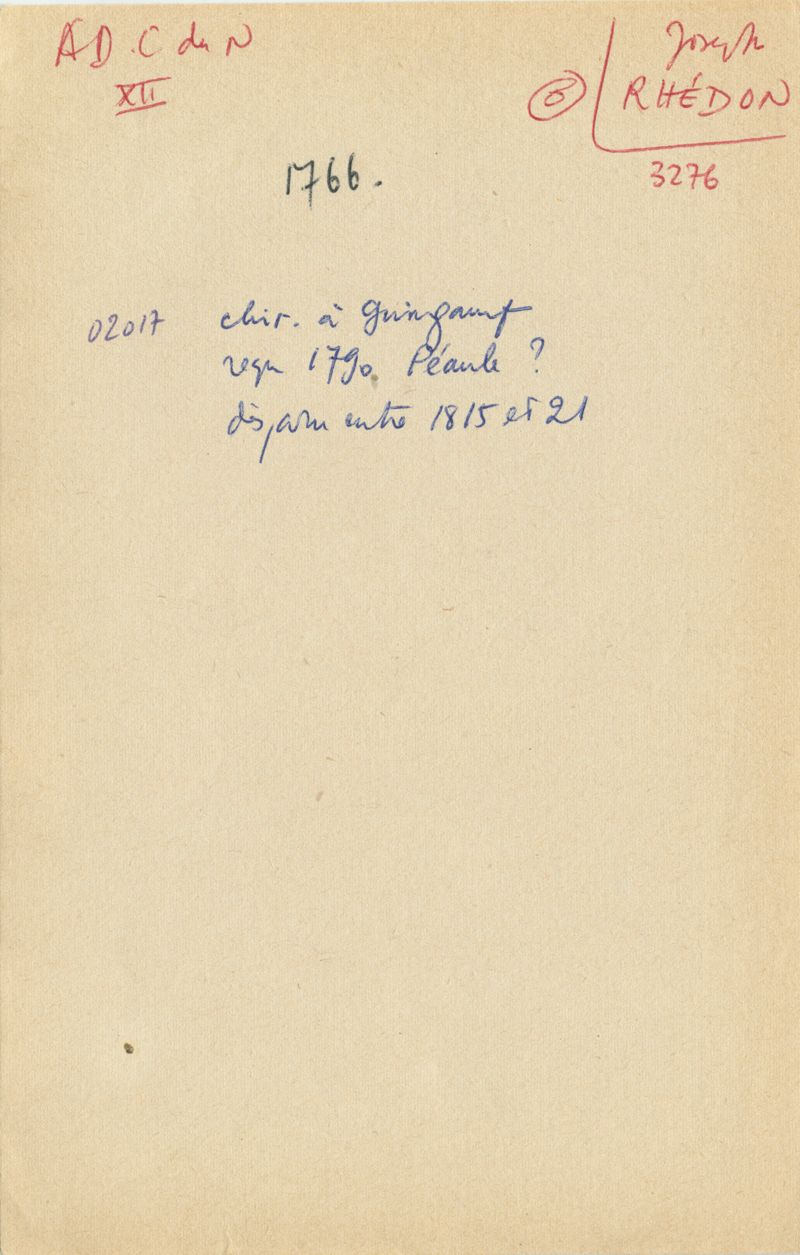 A D. C du N
XII
Joseph
6 RHÉDON
3276
1766.
02017 chir. à Guingamp
reçu 1790 Péaule ?
disparu entre 1815 et 21